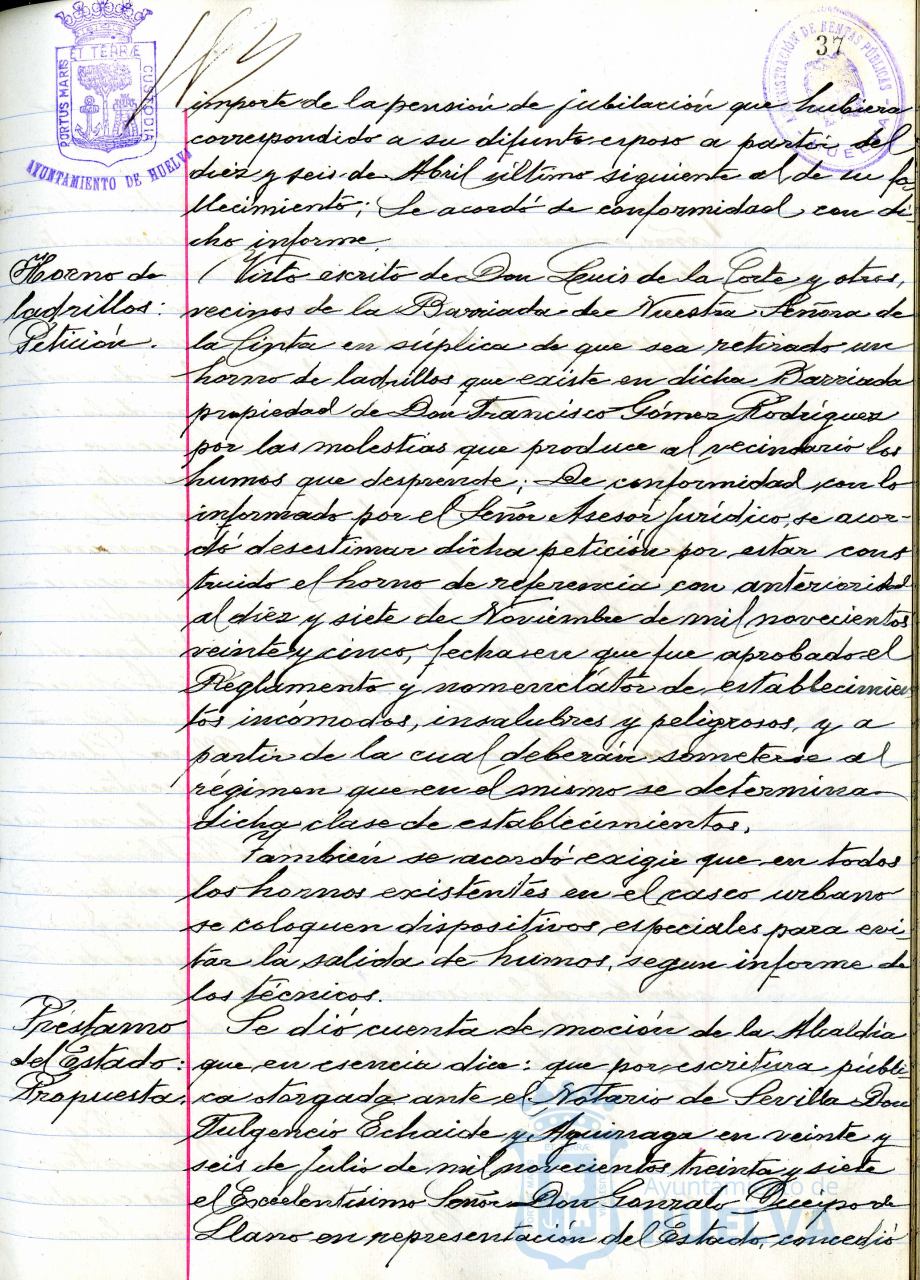 37
PORTUS MARIS ET TERRÆ CUSTODIA
AYUNTAMIENTO DE HUELVA
ADMINISTRACIÓN DE RENTAS PÚBLICAS
HUELVA
importe de la pensión de jubilación que hubiera
correspondido a su difunto esposo a partir del
diez y seis de Abril último siguiente al de su fa-
llecimiento; Se acordó de conformidad con di-
cho informe.
Horno de
ladrillos:
Petición.
Visto escrito de Don Luis de la Corte y otros,
vecinos de la Barriada de Nuestra Señora de
la Cinta en súplica de que sea retirado un
horno de ladrillos que existe en dicha Barriada
propiedad de Don Francisco Gómez Rodríguez
por las molestias que produce al vecindario los
humos que desprende; De conformidad con lo
informado por el Señor Asesor Jurídico, se acor-
dó desestimar dicha petición por estar cons
truido el horno de referencia con anterioridad
al diez y siete de Noviembre de mil novecientos
veinte y cinco, fecha en que fue aprobado el
Reglamento y nomenclátor de establecimien
tos incómodos, insalubres y peligrosos, y a
partir de la cual deberán someterse al
régimen que en el mismo se determina
dicha clase de establecimientos.
También se acordó exigir que en todos
los hornos existentes en el casco urbano
se coloquen dispositivos especiales para evi-
tar la salida de humos, segun informe de
los técnicos.
Préstamo
del Estado:
Propuesta.
Se dió cuenta de moción de la Alcaldía
que en esencia dice: que por escritura públi-
ca otorgada ante el Notario de Sevilla Don
Fulgencio Echaide y Aguinaga en veinte y
seis de Julio de mil novecientos treinta y siete
el Excelentísimo Señor Don Gonzalo Queipo de
Llano en representación del Estado, concedió
Ayuntamiento de
HUELVA